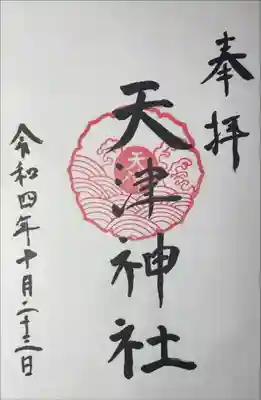 奉拝
天津神社
天
令和四年十月二十三日